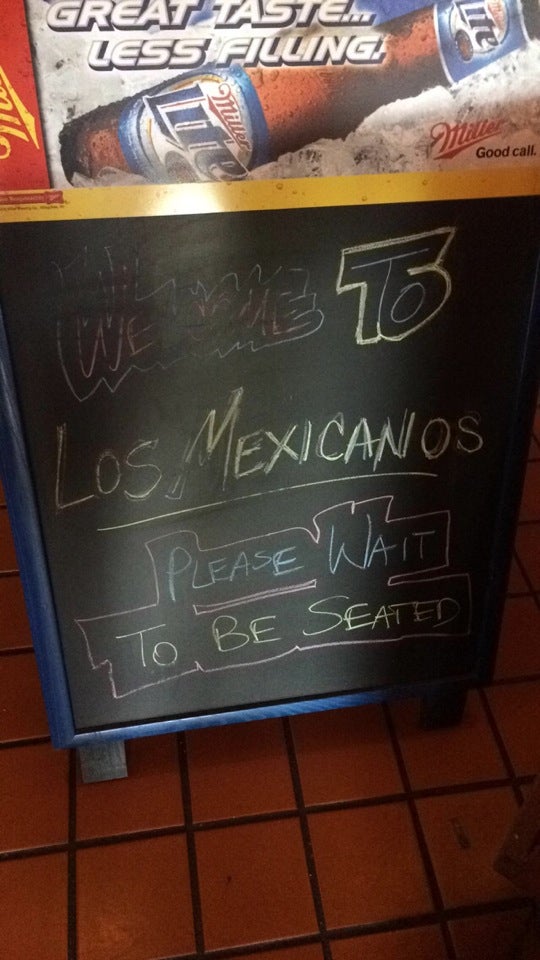 GREAT TASTE...
LESS FILLING!
Miller
Lite
Lite
Miller
Good call.
WELCOME TO
LOS MEXICANOS
PLEASE WAIT
TO BE SEATED